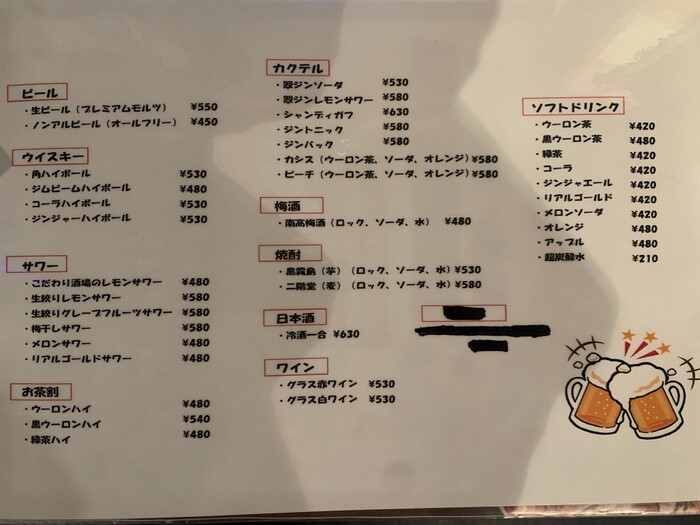 ビール
・生ビール（プレミアムモルツ） ¥550
・ノンアルビール（オールフリー） ¥450
ウイスキー
・角ハイボール ¥530
・ジムビームハイボール ¥480
・コーラハイボール ¥530
・ジンジャーハイボール ¥530
サワー
・こだわり酒場のレモンサワー ¥480
・生絞りレモンサワー ¥580
・生絞りグレープフルーツサワー ¥580
・梅干しサワー ¥580
・メロンサワー ¥480
・リアルゴールドサワー ¥480
お茶割
・ウーロンハイ ¥480
・黒ウーロンハイ ¥540
・緑茶ハイ ¥480
カクテル
・翠ジンソーダ ¥530
・翠ジンレモンサワー ¥580
・シャンディガフ ¥630
・ジントニック ¥580
・ジンバック ¥580
・カシス（ウーロン茶、ソーダ、オレンジ）¥580
・ピーチ（ウーロン茶、ソーダ、オレンジ）¥580
梅酒
・南高梅酒（ロック、ソーダ、水） ¥480
焼酎
・黒霧島（芋）（ロック、ソーダ、水）¥530
・二階堂（麦）（ロック、ソーダ、水）¥580
日本酒
・冷酒一合 ¥630
ワイン
・グラス赤ワイン ¥530
・グラス白ワイン ¥530
ソフトドリンク
・ウーロン茶 ¥420
・黒ウーロン茶 ¥480
・緑茶 ¥420
・コーラ ¥420
・ジンジャエール ¥420
・リアルゴールド ¥420
・メロンソーダ ¥420
・オレンジ ¥480
・アップル ¥480
・超炭酸水 ¥210